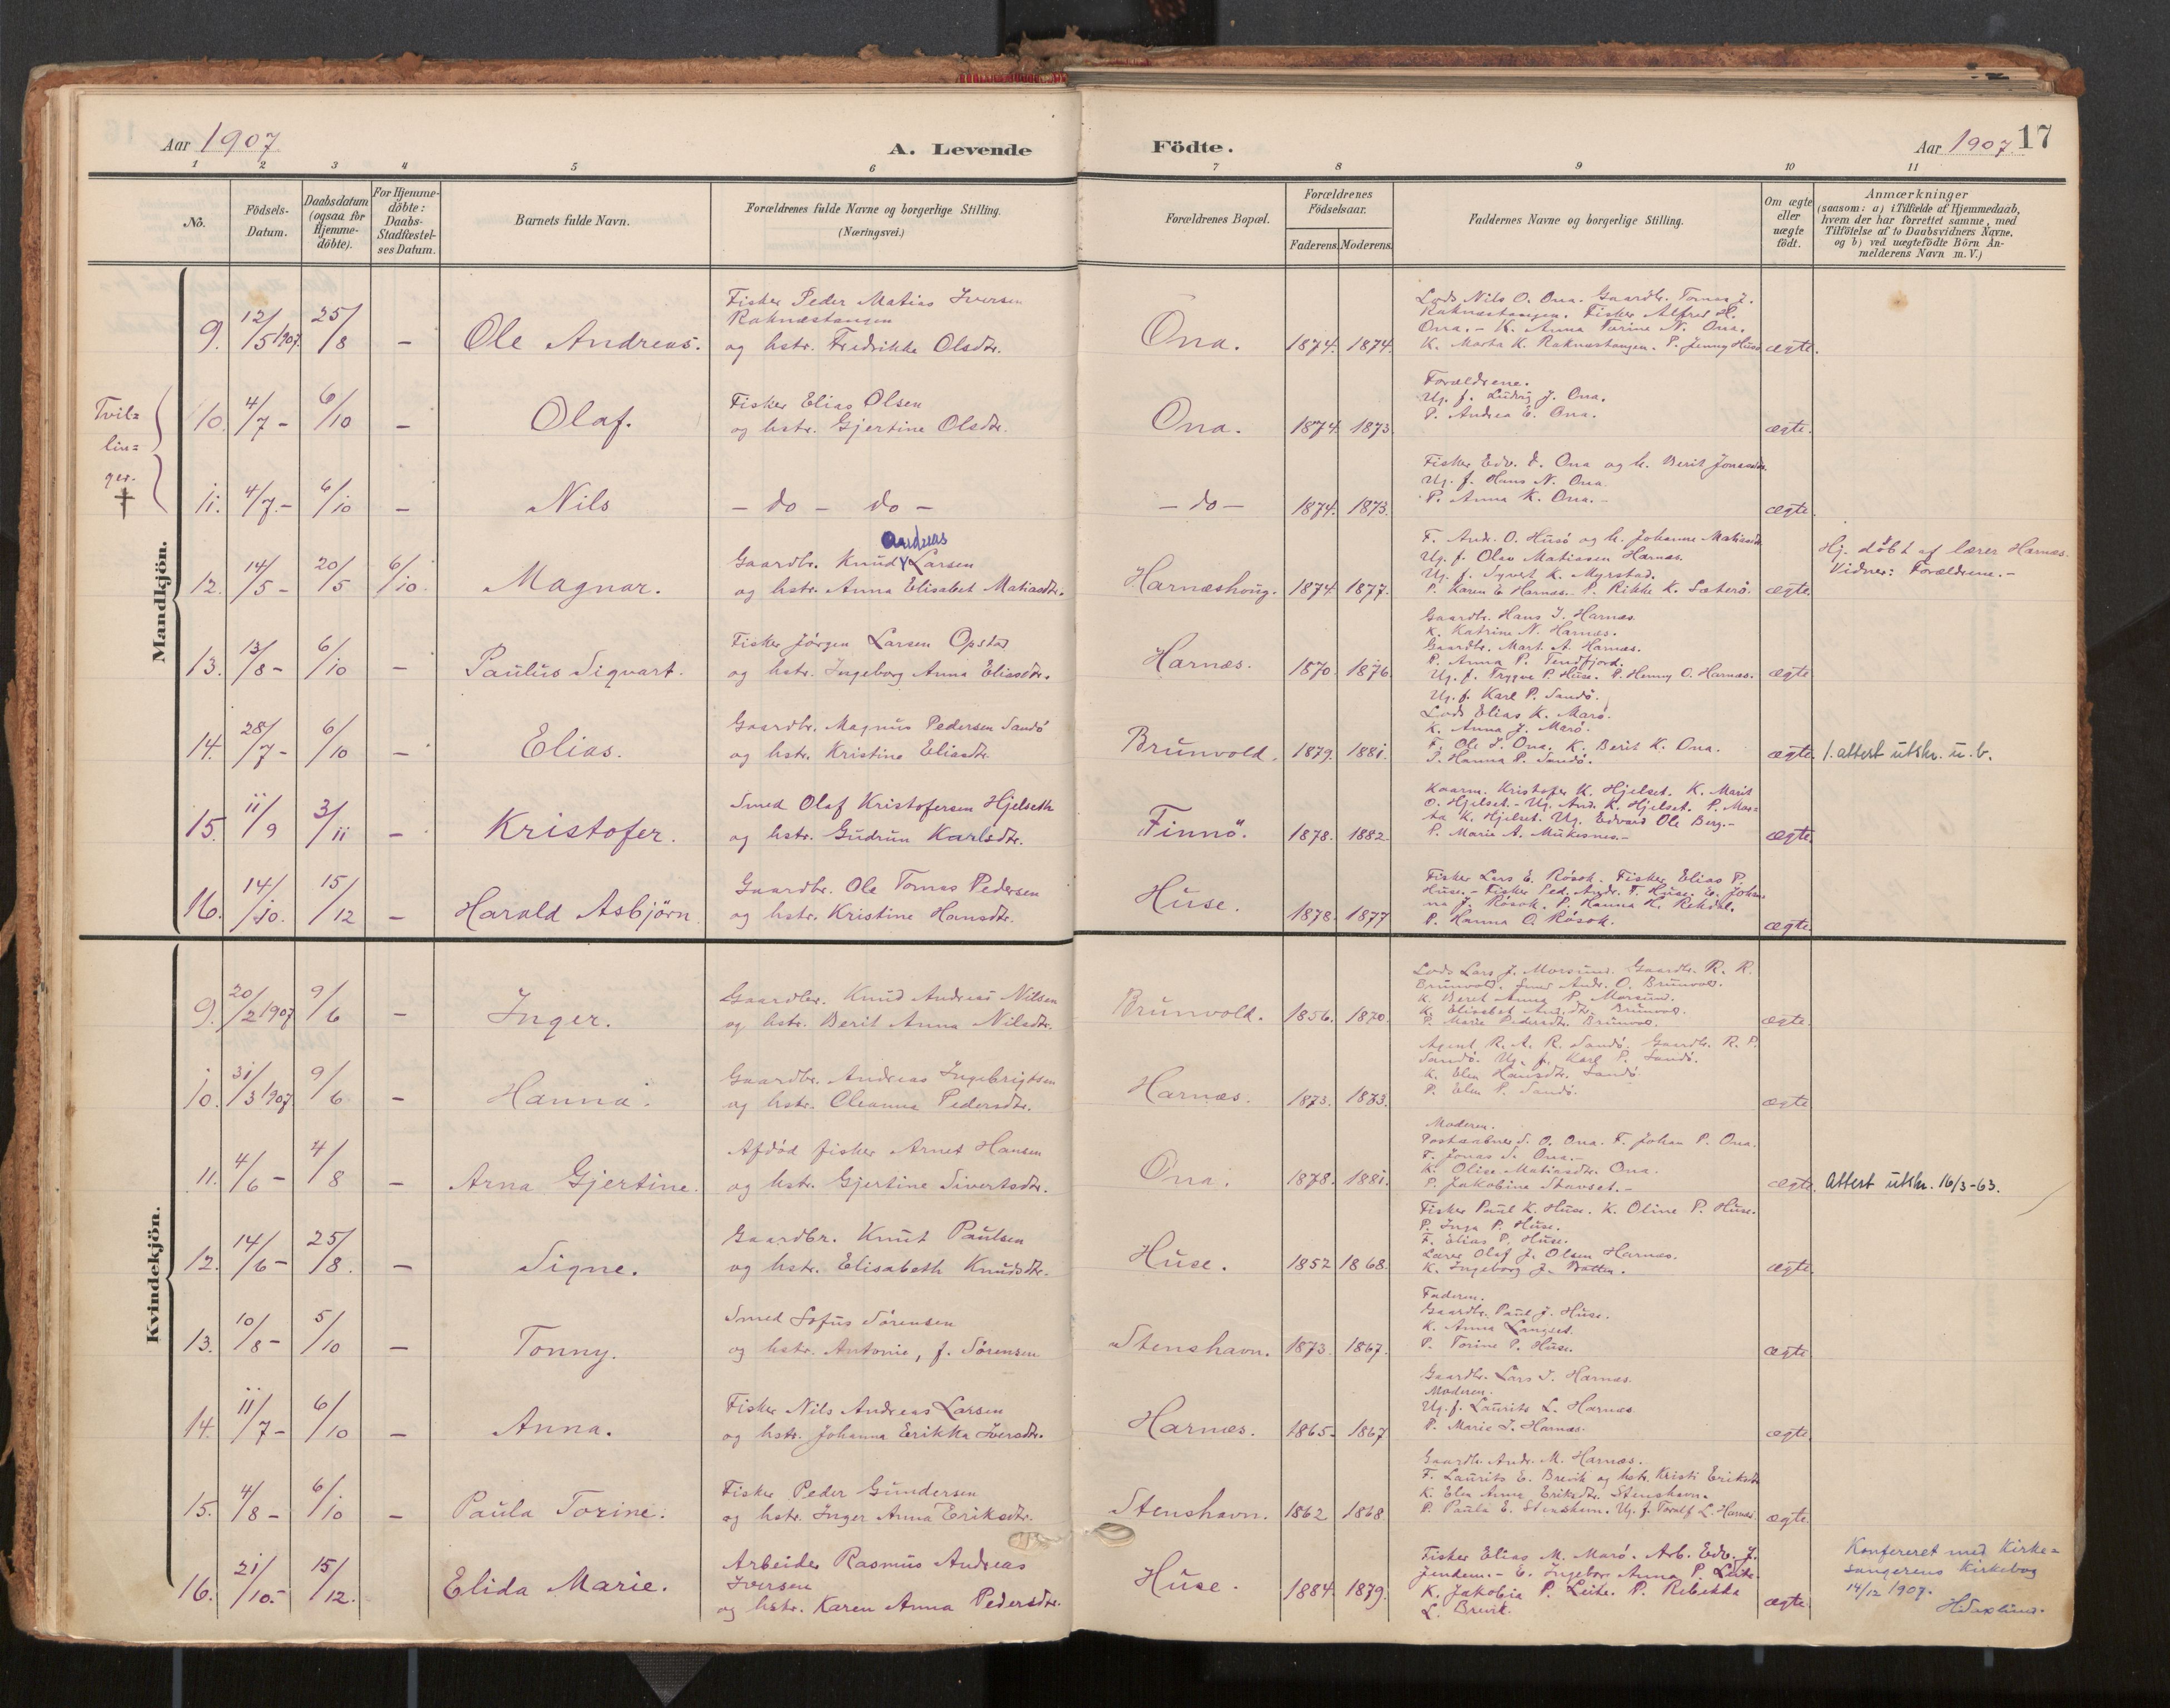 Aar 1907
A. Levende
Födte.
Aar 1907. 17
1 2 3 4 5 6 7 8 9 10 11
No.
Födsels-
Datum.
Daabsdatum
(ogsaa for
Hjemme-
döbte).
For Hjemme-
döbte:
Daabs-
Stadfæstel-
ses Datum.
Barnets fulde Navn.
Forældrenes fulde Navne og borgerlige Stilling.
(Næringsvei.)
Forældrenes Bopæl.
Forældrenes
Födselsaar.
Faderens. Moderens.
Faddernes Navne og borgerlige Stilling.
Om ægte
eller
uægte
födt.
Anmærkninger
(saasom: a) i Tilfælde af Hjemmedaab,
hvem der har forrettet samme, med
Tilföielse af to Daabsvidners Navne,
og b) ved uægtefödte Börn An-
melderens Navn m. V.)
Mandkjön.
9. 12/5 1907. 25/8 - Ole Andreas.
Fisker Peder Matias Iversen
Raknæstangen
og hstr. Fredrikke Olsdtr.
Ona. 1874. 1874.
Lods Nils O. Ona. Gaardbr. Tomas J.
Raknæstangen. Fisker Alfred H.
Ona. - K. Anna Turine N. Ona.
K. Marta K. Raknæstangen. P. Jenny Huse
ægte.
Tvil=
lin=
ger.
10. 4/7 - 6/10 - Olaf.
Fisker Elias Olsen
og hstr. Gjertine Olsdtr.
Ona. 1874. 1873.
Forældrene.
Ug. f. Ludvig J. Ona.
P. Andrea E. Ona.
ægte.
11. 4/7. - 6/10 - Nils
- do - do -
- do - 1874. 1873.
Fisker Edv. E. Ona og h. Berit Jonasdtr.
Ug. f. Hans N. Ona.
P. Anna K. Ona. -
ægte.
12. 14/5 - 20/5 6/10. Magnar.
Andreas
Gaardbr. Knud Larsen
og hstr. Anna Elisabet Matiasdtr.
Harnæshoug. 1874. 1877.
F. Andr. O. Husö og h. Johanne Matiasdtr.
Ug. f. Olav Matiassen Harnæs.
Ug. f. Syvert K. Myrstad.
P. Karen E Harnæs. P. Rikke K. Sæterö.
ægte.
Hj. döbt af lærer Harnæs.
Vidner: Forældrene. -
13. 13/8 - 6/10 - Paulus Sigvart.
Fisker Jörgen Larsen Opstad
og hstr. Ingeborg Anna Eliasdtr.
Harnæs. 1870. 1876.
Gaardbr. Hans J. Harnæs.
K. Katrine N. Harnæs.
Gaardbr. Mart. A. Harnæs.
P. Anna P. Tendfjord.
Ug. f. Trygve P. Huse. P. Henny O. Harnæs.
Ug. f. Karl P. Sandö.
ægte
14. 28/7 - 6/10 - Elias.
Gaardbr. Magnus Pedersen Sandö
og hstr. Kristine Eliasdtr.
Brunvold. 1879. 1881.
Lods Elias K. Marö.
K. Anna J. Marö.
F. Ole J. Ona. K. Berit K. Ona.
P. Hanna P. Sandö.
ægte. 1. attest utskr. u. b.
15. 11/9 3/11 - Kristofer.
Smed Olaf Kristofersen Hjelseth
og hstr. Gudrun Karlsdtr.
Finnö. 1878. 1882.
Kaarm. Kristofer K. Hjelset. K. Marit
O. Hjelset. - Ug. And. K. Hjelset. P. Mar=
ta K. Hjelset. Ug. Edvard Ole Berg. -
P. Marie A. Mükesnes. -
ægte.
16. 14/10. 15/12 - Harald Asbjörn.
Gaardbr. Ole Tomas Pedersen
og hstr. Kristine Hansdtr.
Huse. 1878. 1877
Fisker Lars E. Rösok. Fisker Elias P.
Huse. - Fisker Ped. Andr. T. Huse. E. Johan
na J. Rösok. P. Hanna H. Rekdal.
P. Hanna O. Rösok.
ægte.
Kvindekjön.
9. 20/2 1907 9/6 - Inger.
Gaardbr. Knud Andreas Nilsen
og hstr. Berit Anna Nilsdtr.
Brunvold. 1856. 1870.
Lods Lars J. Morsund. Gaardbr. R. R.
Brunvold. Smed Andr. O. Brunvold.
K. Beret Anna P. Morsund.
K. Elisabet And.dtr. Brunvold.
P. Marie Pedersdtr. Brunvold.
ægte.
10. 31/3 1907 9/6 - Hanna.
Gaardbr. Andreas Ingebrigtsen
og hstr. Oleanna Pedersdtr.
Harnæs. 1873. 1873.
Agent R. A. R. Sandö. Gaardbr. R. P.
Sandö. Ug. f. Karl P. Sandö.
K. Elen Hansdtr. Sandö.
P. Elen P. Sandö.
ægte
11. 4/6 - 4/8 - Arna Gjertine.
Afdöd fisker Arnet Hansen
og hstr. Gjertine Sivertsdtr.
Ona. 1878. 1881.
Moderen.
Postaabner S. O. Ona. F. Johan P. Ona.
F. Jonas S. Ona. -
K. Olise Matiasdtr. Ona.
P. Jakobine Stavset. -
ægte. Attest utskr. 16/3-63.
12. 14/6 - 25/8. - Signe.
Gaardbr. Knut Paulsen
og hstr. Elisabeth Knudsdtr.
Huse. 1852 1868.
Fisker Paul K. Huse. K. Oline P. Huse.
P. Inga P. Huse.
F. Elias P. Huse.
Lærer Olaf J. Olsen Harnæs.
K. Ingeborg J. Batten.
ægte.
13. 10/8 - 5/10 - Tonny.
Smed Sofus Sörensen
og hstr. Antonie, f. Sörensen
Stenshavn. 1873. 1867.
Faderen.
Gaardbr. Paul J. Huse.
K. Anna Langset.
P. Torine P. Huse.
ægte
14. 11/7 - 6/10 - Anna.
Fisker Nils Andreas Larsen
og hstr. Johanna Erikka Iversdtr.
Harnæs. 1865. 1867
Gaardbr. Lars S. Harnæs.
Moderen.
Ug. f. Laurits L. Harnæs.
P. Marie I. Harnæs.
ægte.
15. 4/8 - 6/10 - Paula Torine.
Fisker Peder Gundersen
og hstr. Inger Anna Eriksdtr.
Stenshavn. 1862 1868
Gaardbr. Andr. M. Harnæs.
F. Laurits E. Brevik og hstr. Kristi Eriksdtr
K. Elen Anna Eriksdtr. Stenshavn.
P. Paula E. Stenshavn. Ug. f. Toralf L. Harnæs
ægte.
16. 21/10. - 15/12. Elida Marie.
Arbeider Rasmus Andreas
Iversen
og hstr. Karen Anna Pedersdtr.
Huse. 1884. 1879.
Fisker Elias M. Marö. Arb. Edv. J.
Jendem. - E. Ingebor Anna P. Leite.
K. Jakobia P. Leite. P. Rebekka
L. Brevik.
ægte
Konfereret med Kirke=
sangerens Kirkebog
14/12 1907.